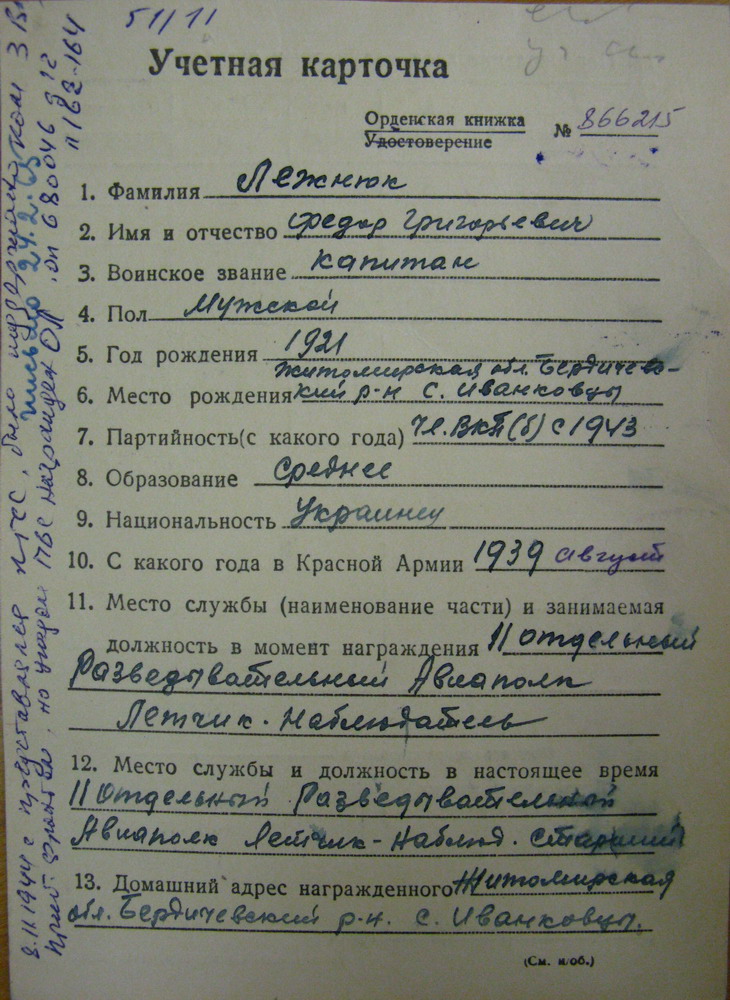 51/11
Учетная карточка
Орденская книжка
Удостоверение
№ 866215
1. Фамилия Лежнюк
2. Имя и отчество Федор Григорьевич
3. Воинское звание капитан
4. Пол Мужской
5. Год рождения 1921
Житомирская обл. Бердичевс-
6. Место рождения кий р-н с. Иванковцы
7. Партийность(с какого года) Чл. ВКП(б) с 1943
8. Образование Среднее
9. Национальность Украинец
10. С какого года в Красной Армии 1939 август
11. Место службы (наименование части) и занимаемая
должность в момент награждения 11 отдельный
Разведывательный Авиаполк
Летчик-Наблюдатель
12. Место службы и должность в настоящее время
11 Отдельный Разведывательный
Авиаполк Летчик-Наблюд. Старший
13. Домашний адрес награжденного Житомирская
обл. Бердичевский р-н. с. Иванковцы.
(См. н/об.)
8.11.1944 г представлен к ГСС, было 3
письмо 24.2.65
фронтом, но указом ПВС награжден ОЛ. оп 680046 д 12
л 162-164